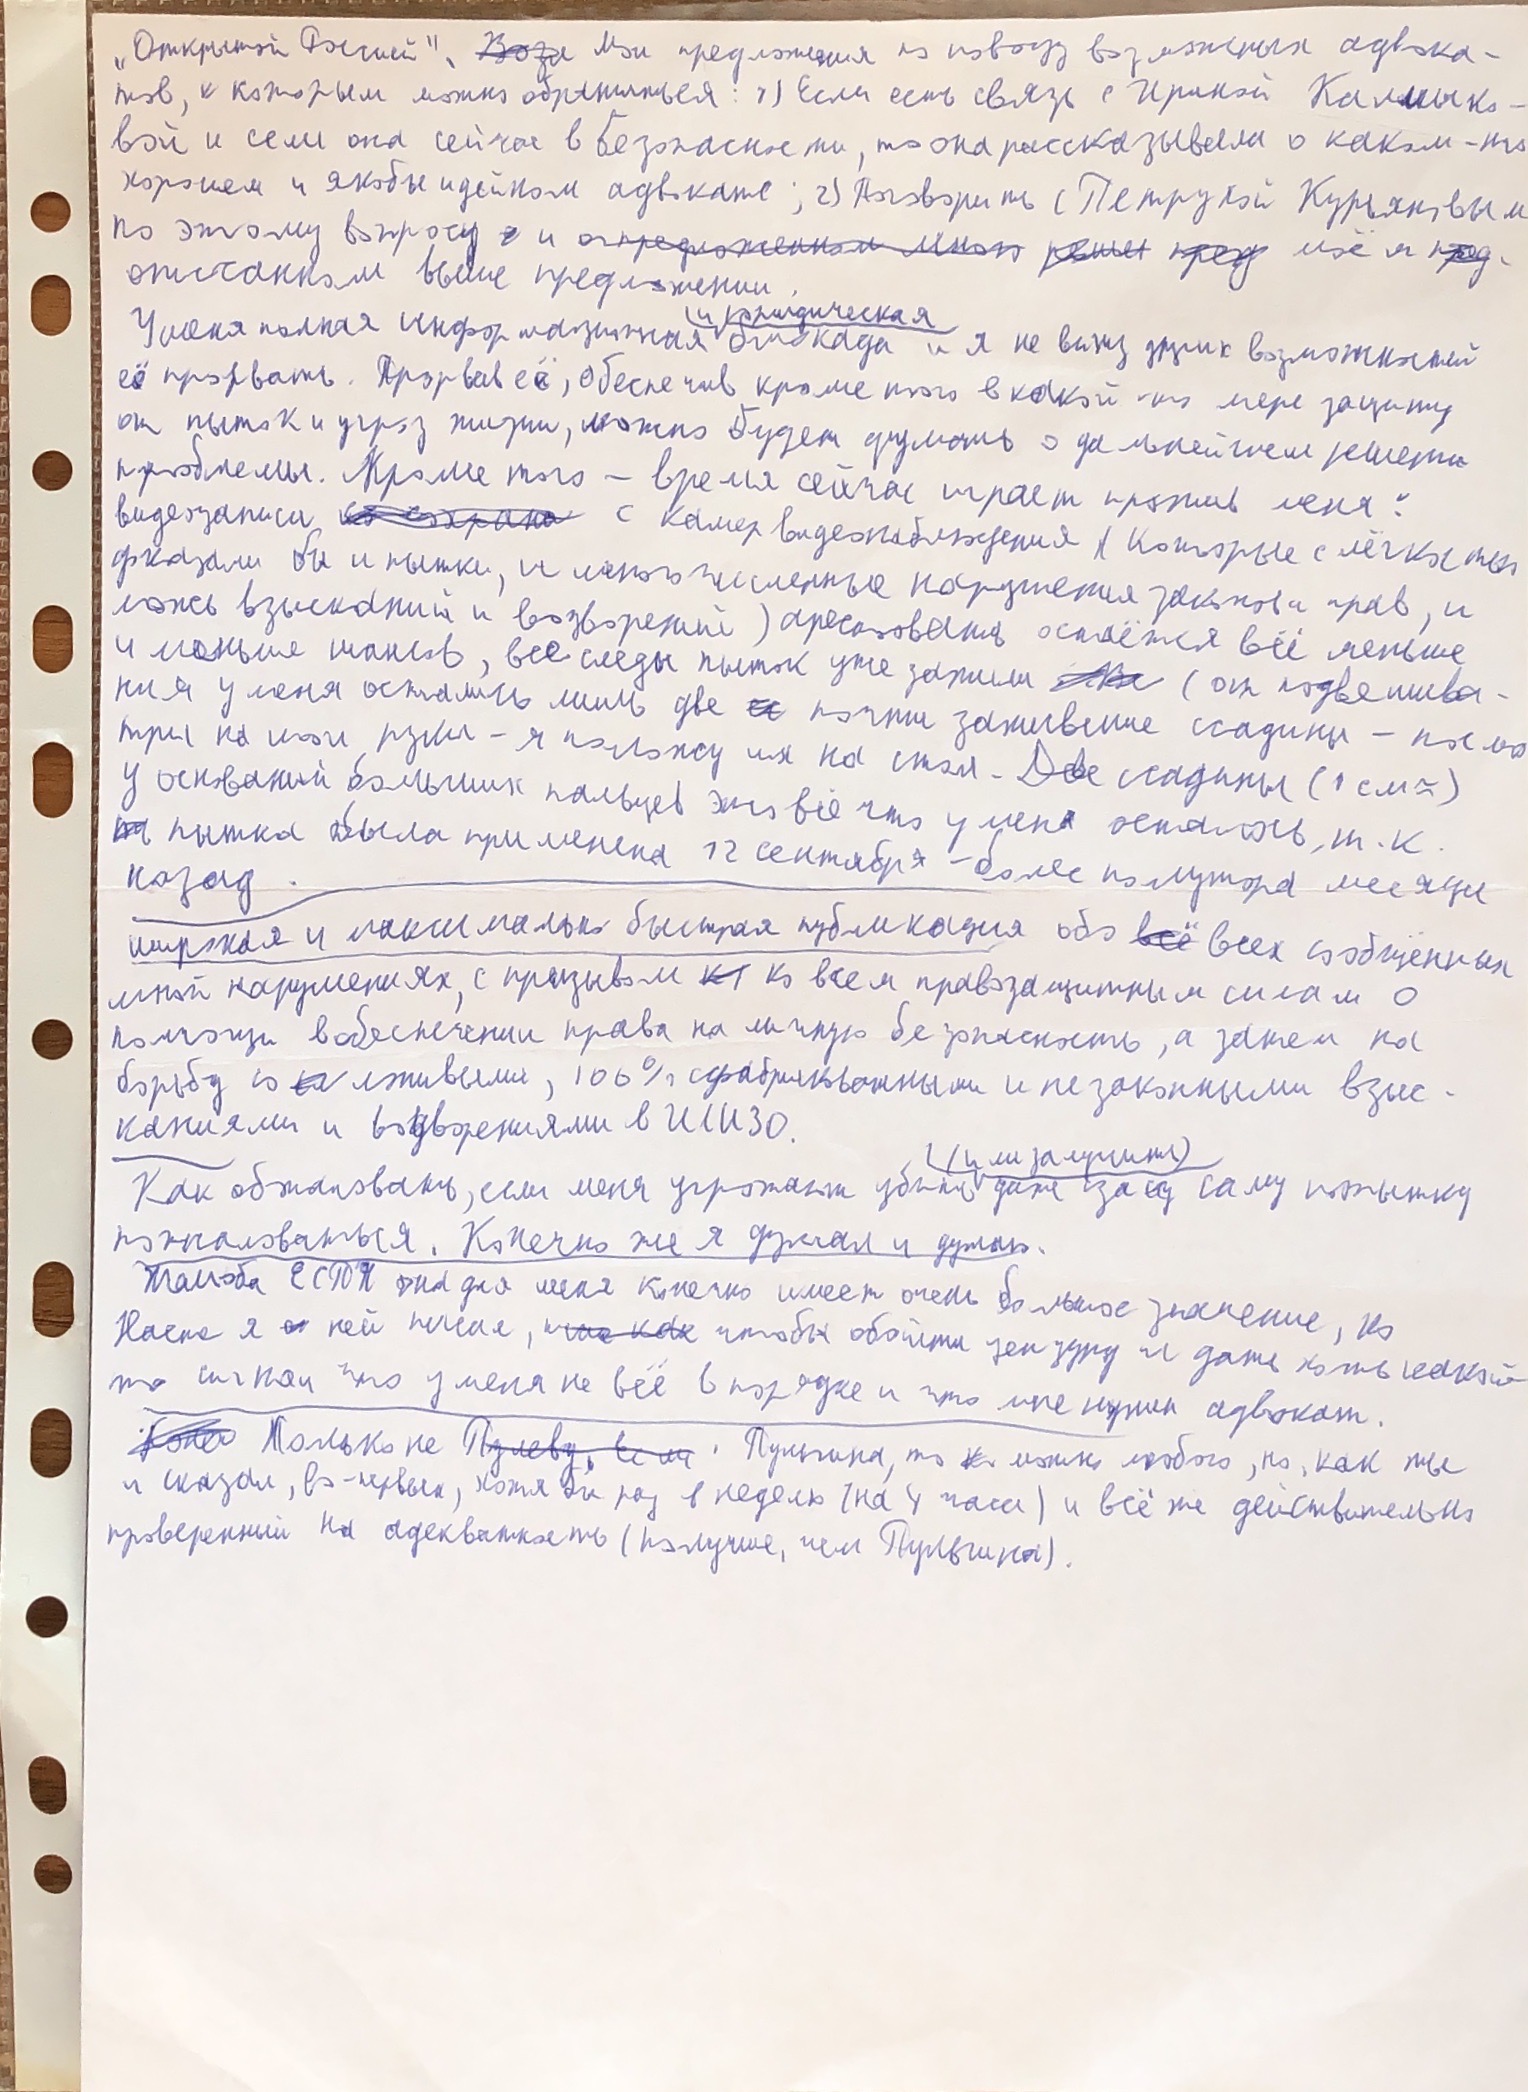 „Открытой Россией". Мои предложения по поводу возможных адвока-
тов, к которым можно обратиться: 1) Если есть связь с Ириной Калмыко-
вой и если она сейчас в безопасности, то она рассказывала о каком-то
хорошем и якобы идейном адвокате; 2) Поговорить с Петрухой Курьяновым
по этому вопросу и о моём
описанном выше предложении.
У меня полная информационная (и юридическая) блокада и я не вижу других возможностей
её прорвать. Прорвав её, обеспечив кроме того в какой-то мере защиту
от пыток и угроз жизни, можно будет думать о дальнейшем решении
проблемы. Кроме того – время сейчас играет против меня:
видеозаписи с камер видеонаблюдения (которые с лёгкостью
доказали бы и пытки, и многочисленные нарушения законов и прав, и
ложь взысканий и водворений) арестовать остаётся всё меньше
и меньше шансов, все следы пыток уже зажили (от подвешива-
ния у меня остались лишь две почти зажившие ссадины – посмо
три на мои руки – я положу их на стол. Две ссадины (1 см ≈)
у оснований больших пальцев это всё что у меня осталось, т.к.
пытка была применена 12 сентября – более полутора месяца
назад.
широкая и максимально быстрая публикация обо всех сообщённых
мной нарушениях, с призывом ко всем правозащитным силам о
помощи в обеспечении права на личную безопасность, а затем на
борьбу со лживыми, 100% сфабрикованными и незаконными взыс-
каниями и водворениями в ШИЗО.
Как обжаловать, если меня угрожают убить (или замучить) даже за саму попытку
пожаловаться. Конечно же я думал и думаю.
Жалоба ЕСПЧ она для меня конечно имеет очень большое значение, но
Насте я о ней писал, чтобы обойти цензуру и дать хоть какой
то сигнал что у меня не всё в порядке и что мне нужен адвокат.
Только не Пулыгина, то можно любого, но, как ты
и сказал, во-первых, хотя бы раз в неделю (на 4 часа) и всё же действительно
проверенный на адекватность (получше, чем Пулыгина).